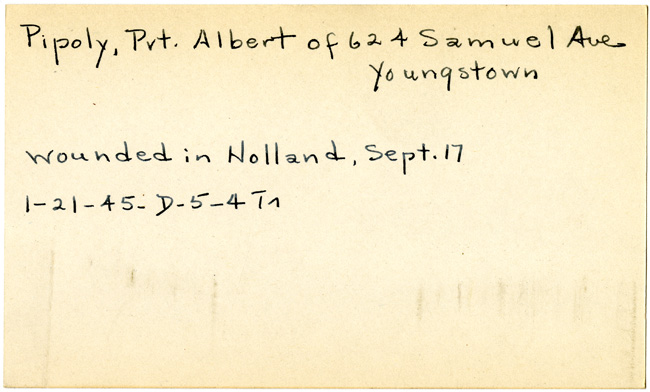 Pipoly, Pvt. Albert of 624 Samuel Ave
Youngstown
wounded in Holland, Sept. 17
1-21-45- D-5-4 Tr